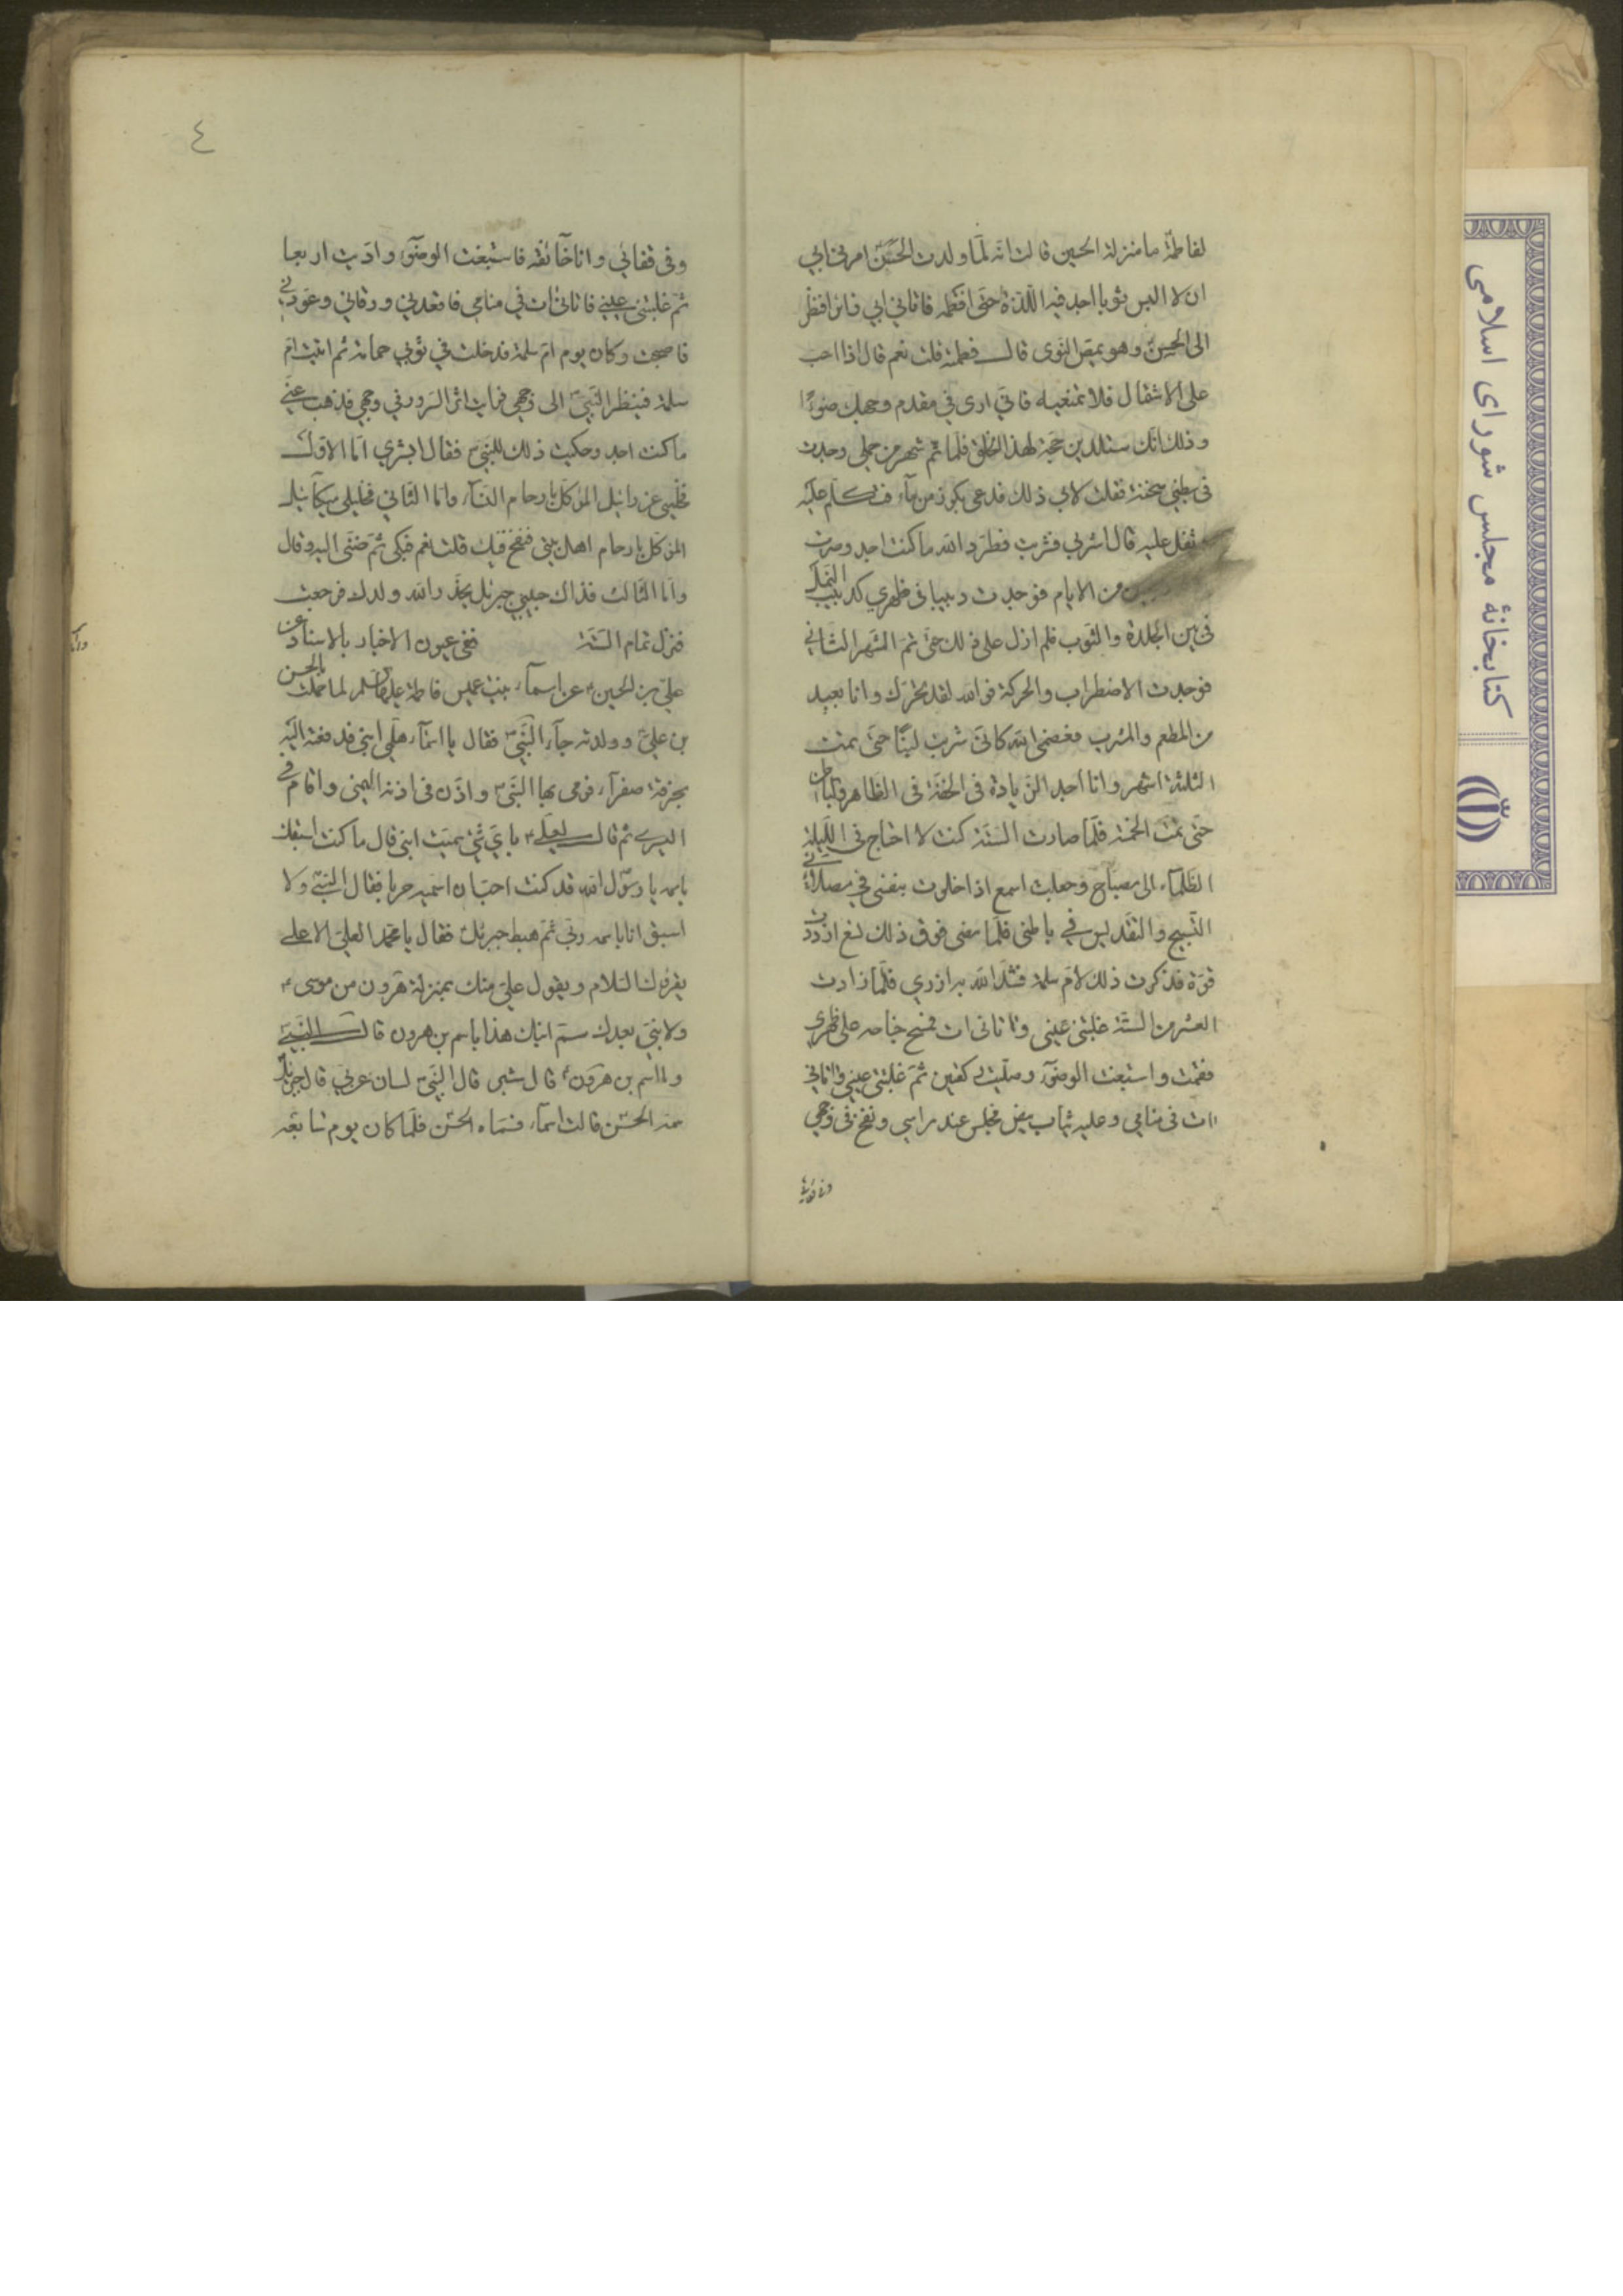 لفاطمة ما منزلة الحسين قالت انه لما ولدت الحسن امرنى ابى
ان لا البس ثوبا اجد فيه اللذة حتى افطمه فاتانى ابى زائرا فنظر
الى الحسن وهو يمص النوى قال فطمته قلت نعم قال اذا احب
على الاشتمال فلا تمنعيه فانى ارى فى مقدم وجهك ضوءا
وذلك انك ستلدين حجة لهذا الخلق فلما تم شهر من حملى وجدت
فى بطنى سخنة فقلت لابى ذلك فدعى بكوز من ماء فتكلم عليه
وتفل عليه قال اشربى فشربت فطرد الله ما كنت اجد وصرت
من الايام فوجدت دبيبا فى ظهرى كدبيب النمل
فى بين الجلدة والثوب فلم ازل على ذلك حتى تم الشهر الثانى
فوجدت الاضطراب والحركة فوالله لقد تحرك وانا بعيد
من المطعم والمشرب فعصمنى الله كانى شربت لبنا حتى تمت
الثلثة اشهر وانا اجد الزيادة فى الخفة فى الظاهر والباطن
حتى تمت الخمسة فلما صارت الستة كنت لا احتاج فى الليلة
الظلماء الى مصباح وجعلت اسمع اذا خلوت بنفسى فى مصلائى
التسبيح والتقديس فى باطنى فلما مضى فوق ذلك تسع ازددت
قوة فذكرت ذلك لام سلمة فشد الله به ازرى فلما زادت
العشر من الستة غلبتنى عينى واتانى ات فمسح جناحه على ظهرى
فقمت واسبغت الوضوء وصليت ركعتين ثم غلبتنى عينى واتانى
ات فى منامى وعليه ثياب بيض فجلس عند راسى ونفخ فى وجهى
وفى قفائى
٤
وفى قفائى وانا خائفة فاسبغت الوضوء واديت اربعا
ثم غلبتنى عينى فاتانى ات فى منامى فاقعدنى ورقانى وعوذنى
فاصبحت وكان يوم ام سلمة فدخلت فى ثوبى حمامة ثم اتيت ام
سلمة فينظر النبى الى وجهى فرايت اثر السرور فى وجهه فذهب عنى
ما كنت اجد وحكيت ذلك للنبى فقال ابشرى اما الاول
فخليلى عزرائيل الموكل بارحام النساء واما الثانى فخليلى ميكائيل
الموكل بارحام اهل بيتى فنفخ فيك قلت نعم فبكى ثم ضمنى اليه وقال
واما الثالث فذاك حبيبى جبرئيل يخدمه الله ولدك فرجعت
فنزل تمام الستة ففى عيون الاخبار بالاسناد عن
على بن الحسين عن اسماء بنت عميس فاطمة لما حملت بالحسن
بن على وولدته جاء النبى فقال يا اسماء هلمى ابنى فدفعته اليه
بخرقة صفراء فرمى بها النبى واذن فى اذنه اليمنى واقام فى
اليسرى ثم قال لعلى باى شئ سميت ابنى قال ما كنت اسبقك
باسمه يا رسول الله قد كنت احب ان اسميه حربا فقال النبى ولا
اسبق انا باسمه ربى ثم هبط جبرئيل فقال يا محمد العلى الاعلى
يقرئك السلام ويقول على منك بمنزلة هرون من موسى
ولا نبى بعدك سم ابنك هذا باسم بن هرون قال النبى
وما اسم بن هرون قال شبر قال النبى لسان عربى قال جبرئيل
سمه الحسن قالت اسماء فسماه الحسن فلما كان يوم سابعه
كتابخانهٔ مجلس شورای اسلامی